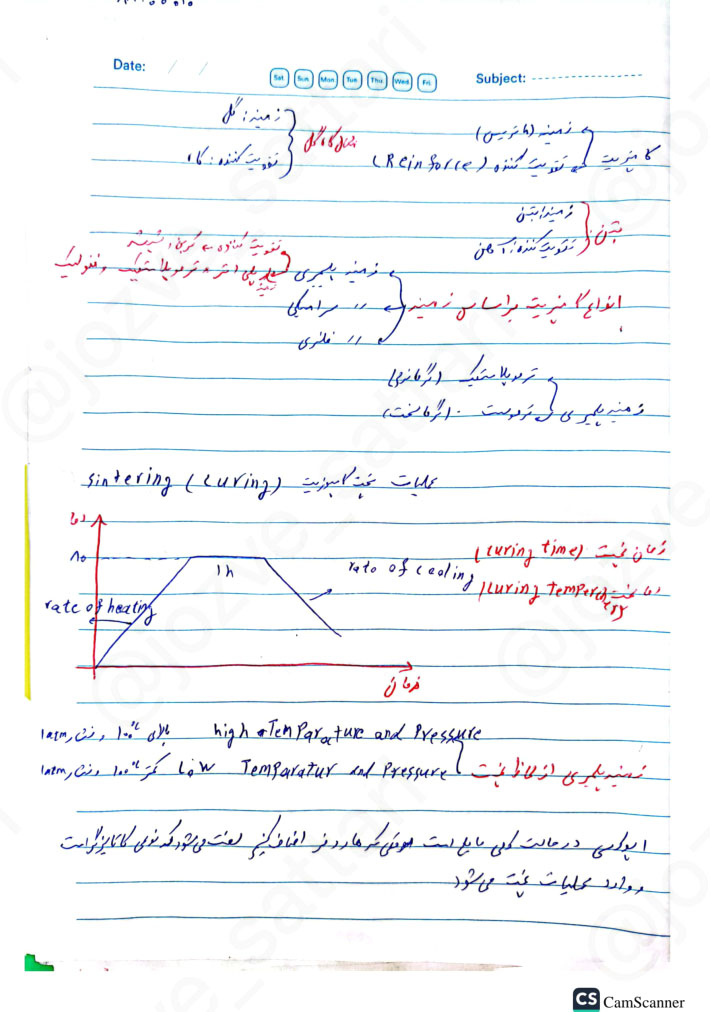 Date: / /
Sat Sun Mon Tue Thu Wed Fri
Subject:
کامپوزیت
زمینه (ماتریس)
تقویت کننده (Reinforce)
مثال کاه گل
زمینه: گل
تقویت کننده: کاه
بتن
زمینه: بتن
تقویت کننده: آهن
انواع کامپوزیت براساس زمینه
تقویت کننده → کربن، شیشه
زمینه پلیمری
پلی استر، ترموپلاستیک و فنولیک
زمینه
// سرامیکی
// فلزی
زمینه پلیمری
ترموپلاستیک (گرمانرم)
ترموست (گرماسخت)
عملیات پخت کامپوزیت (curing) sintering
دما
80
1h
rate of heating
rate of cooling
زمان
زمان پخت (curing time)
دما پخت (curing temperchery
زمینه پلیمری از لحاظ پخت
high Temparature and Pressure بالای 100°c و فشار 1atm
Low Temparatur and Pressure کمتر 100°c و فشار 1atm
اپوکسی در حالت کلی مایع است موقعی که هاردنر اضافه کنیم سفت می‌شود که نوعی کاتالیزگر است
و وارد عملیات پخت می‌شود
CS CamScanner